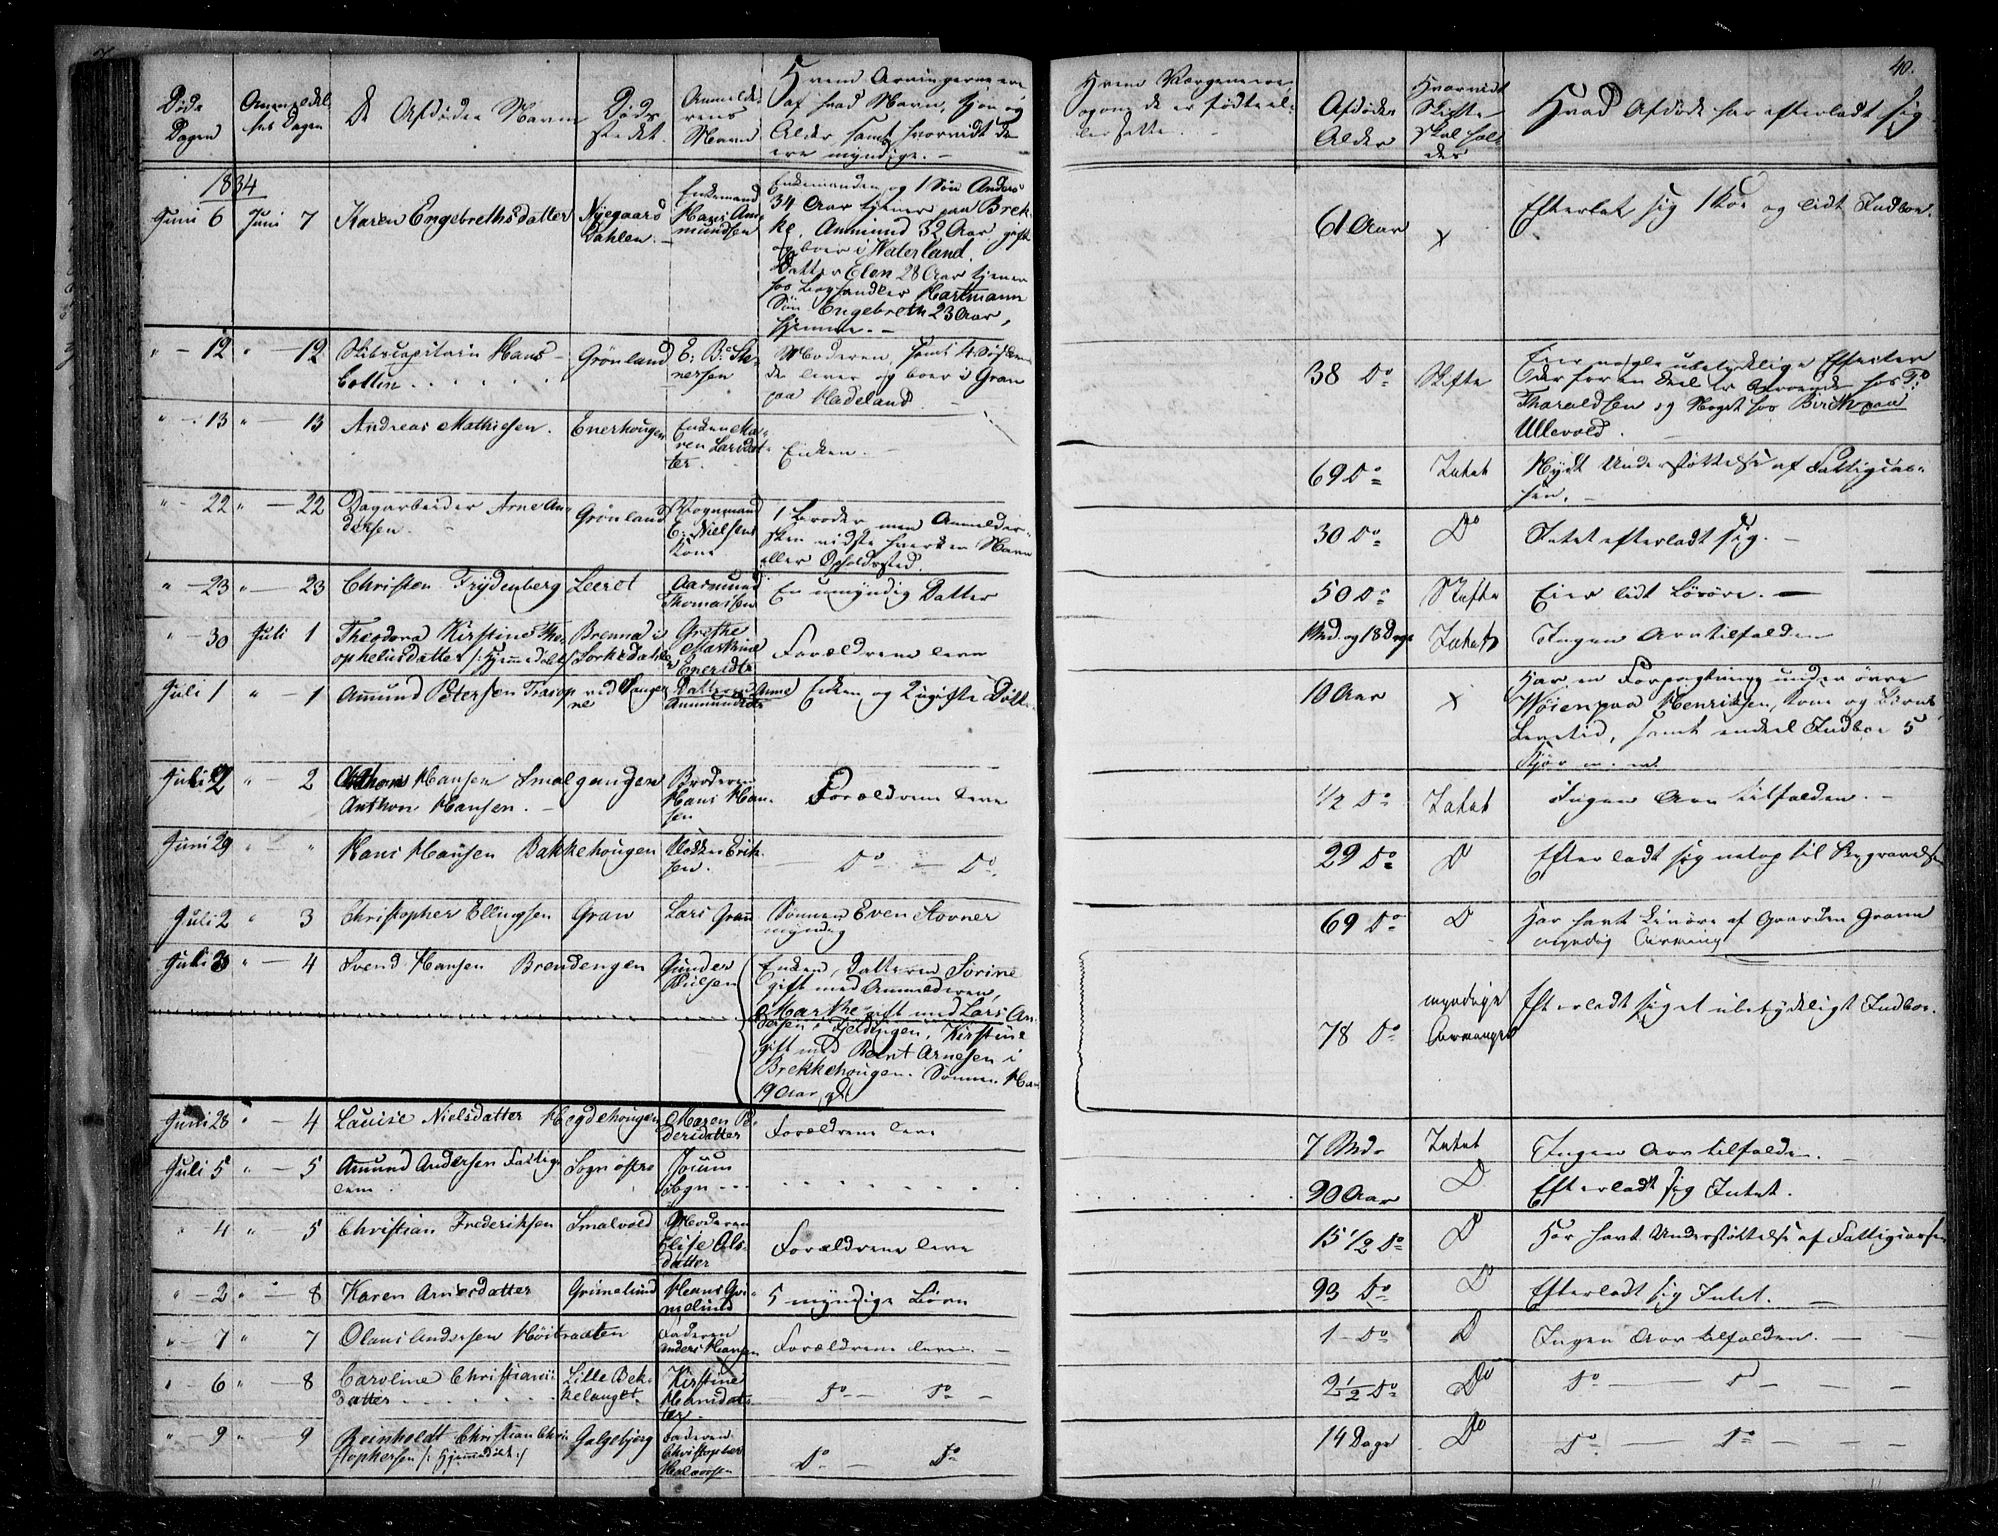 40.
Døds Dagen
Anmeldelses Dagen
De Afdødes Navn
Døds stedet.
Anmelderens Navn
Hvem Arvingerne ere
af hvad Navn, Kjøn og
Alder, samt hvorvidt de
ere myndige. -
Hvem Værgerne ere,
Afdødes Alder
Hvorvidt Skifte skal holdes
Hvad Afdøde har efterladt sig.
1834
Juni 6 Juni 7 Karen Engebrethsdatter Nyegaards Dahlen. - Enkemand Hans Amundsen
Enkemanden og 1 Søn Anders
34 Aar tjener paa Brek-
ke. Ammund 32 Aar, gift
og boer i Waterland.
Datter Elen 28 Aar tjener
hos Boghandler Hartmann
Søn Engebreth 23 Aar,
hjemme. -
61 Aar x Efterlod sig 1 Koe og lidt Indboe.
" - 12 " - 12 Skibscapitain Hans Grønland E: B: Stenersen
Moderen, samt 4 Sødskende
lever og boer i Gran
paa Hadeland -
38 Do Skifte
Eier nogle ubetydelige Effecter
Tharaldsen og Noget hos Birch paa
Ullevold.
" - 13 " - 13 Andreas Mathiesen. Enerhougen Enken Maren Larsdatter. Enken. -
69 Do Intet Nydt Understøttelse af Fattigcassen. -
" - 22 " - 22 Dagarbeider Arne Andersen. Grønland Vognmand E: Nielsens Kone
1 Broder, men Anmelder-
sken vidste hverken Navn
eller Opholdssted.
30 Do Do Intet efterladt sig. -
" - 23 " - 23 Christen Frydenberg Leeret Aasmund Thomassen En umyndig Datter
50 Do Skifte Eier lidt Løsøre. -
" - 30 Juli 1 Theodora Kirstine Theophelusdatter /: Hjemmedøbt :/ Brenna i Sørkedalen Grethe Marthine Enersdtr Forældrene leve
1 Md. og 18 Dage Intet Ingen Arv tilfalden
Juli 1 " - 1 Amund Petersen Datteren Anne Ammundsdtr Enken og 2 gifte Døttre
10 Aar x
Har en Forpagtning under øvre
Wøien paa Henriksen, Kone og Børns
Levetid, samt endeel Indboe 5
Kjør m. m.
Juli 2 " - 2 Anthon Hansen. - Smalgangen Broderen Hans Hansen Forældrene leve
1/2 Do Intet Ingen Arv tilfalden. -
Juni 29 " " Hans Hansen Bakkehougen - Do - Do.
29 Do D Efterladt sig netop til Begravelse
Juli 2 " 3 Christopher Ellingsen Gran Lars Gran Sønnen Even Stovner myndig
69 Do D Har havt Livøre af Gaarden Grann
myndig Arving
Juli 3 " - 4 Svend Hansen Brendengen Gunder
Enken, Datteren Sørine
gift med Anmelderen,
Marthe gift med Lars An-
dersen i Geldingen, Kirstine
gift med Bernt Arnesen i
Brekkehougen. Sønnen Hans
19 Aar gl.
78 Do myndige Arvinger Efterladt sig et ubetydeligt Indboe.
Juni 28 " - 4 Louise Nielsdatter Hegdehougen Maren Pedersdatter Forældrene leve
7 Md. Intet Ingen Arv tilfalden. -
Juli 5 " - 5 Amund Andersen Fattiglem. Sogn østre Jocum Sogn
90 Aar D Efterladt sig Intet.
" 4 " - 5 Christian Frederiksen Smalvold Moderen Elise Olsdatter Forældrene leve
15 1/2 Do D Har havt Understøttelse af Fattigcassen
" - 2 " - 8 Karen Arnesdatter Grimelund Hans Grimelund 5 myndige Børn
93 Do D Efterladt sig Intet. -
" - 7 " 7 Olaus Andersen Høibraaten Faderen Anders Hansen Forældrene leve. -
1 - Do D Ingen Arv tilfalden. -
" - 6 " - 8 Caroline Christiansdatter Lille Bekkelauget. Kirstine Hansdatter Do - Do -
2 1/2 Do Do Do - D - -
" - 9 " 9 Reinholdt Christian Christophersen /: Hjemmedøbt :/ Galgebjerg Faderen Christopher Halvorsen Do - Do
14 Dage Do Do - Do - -